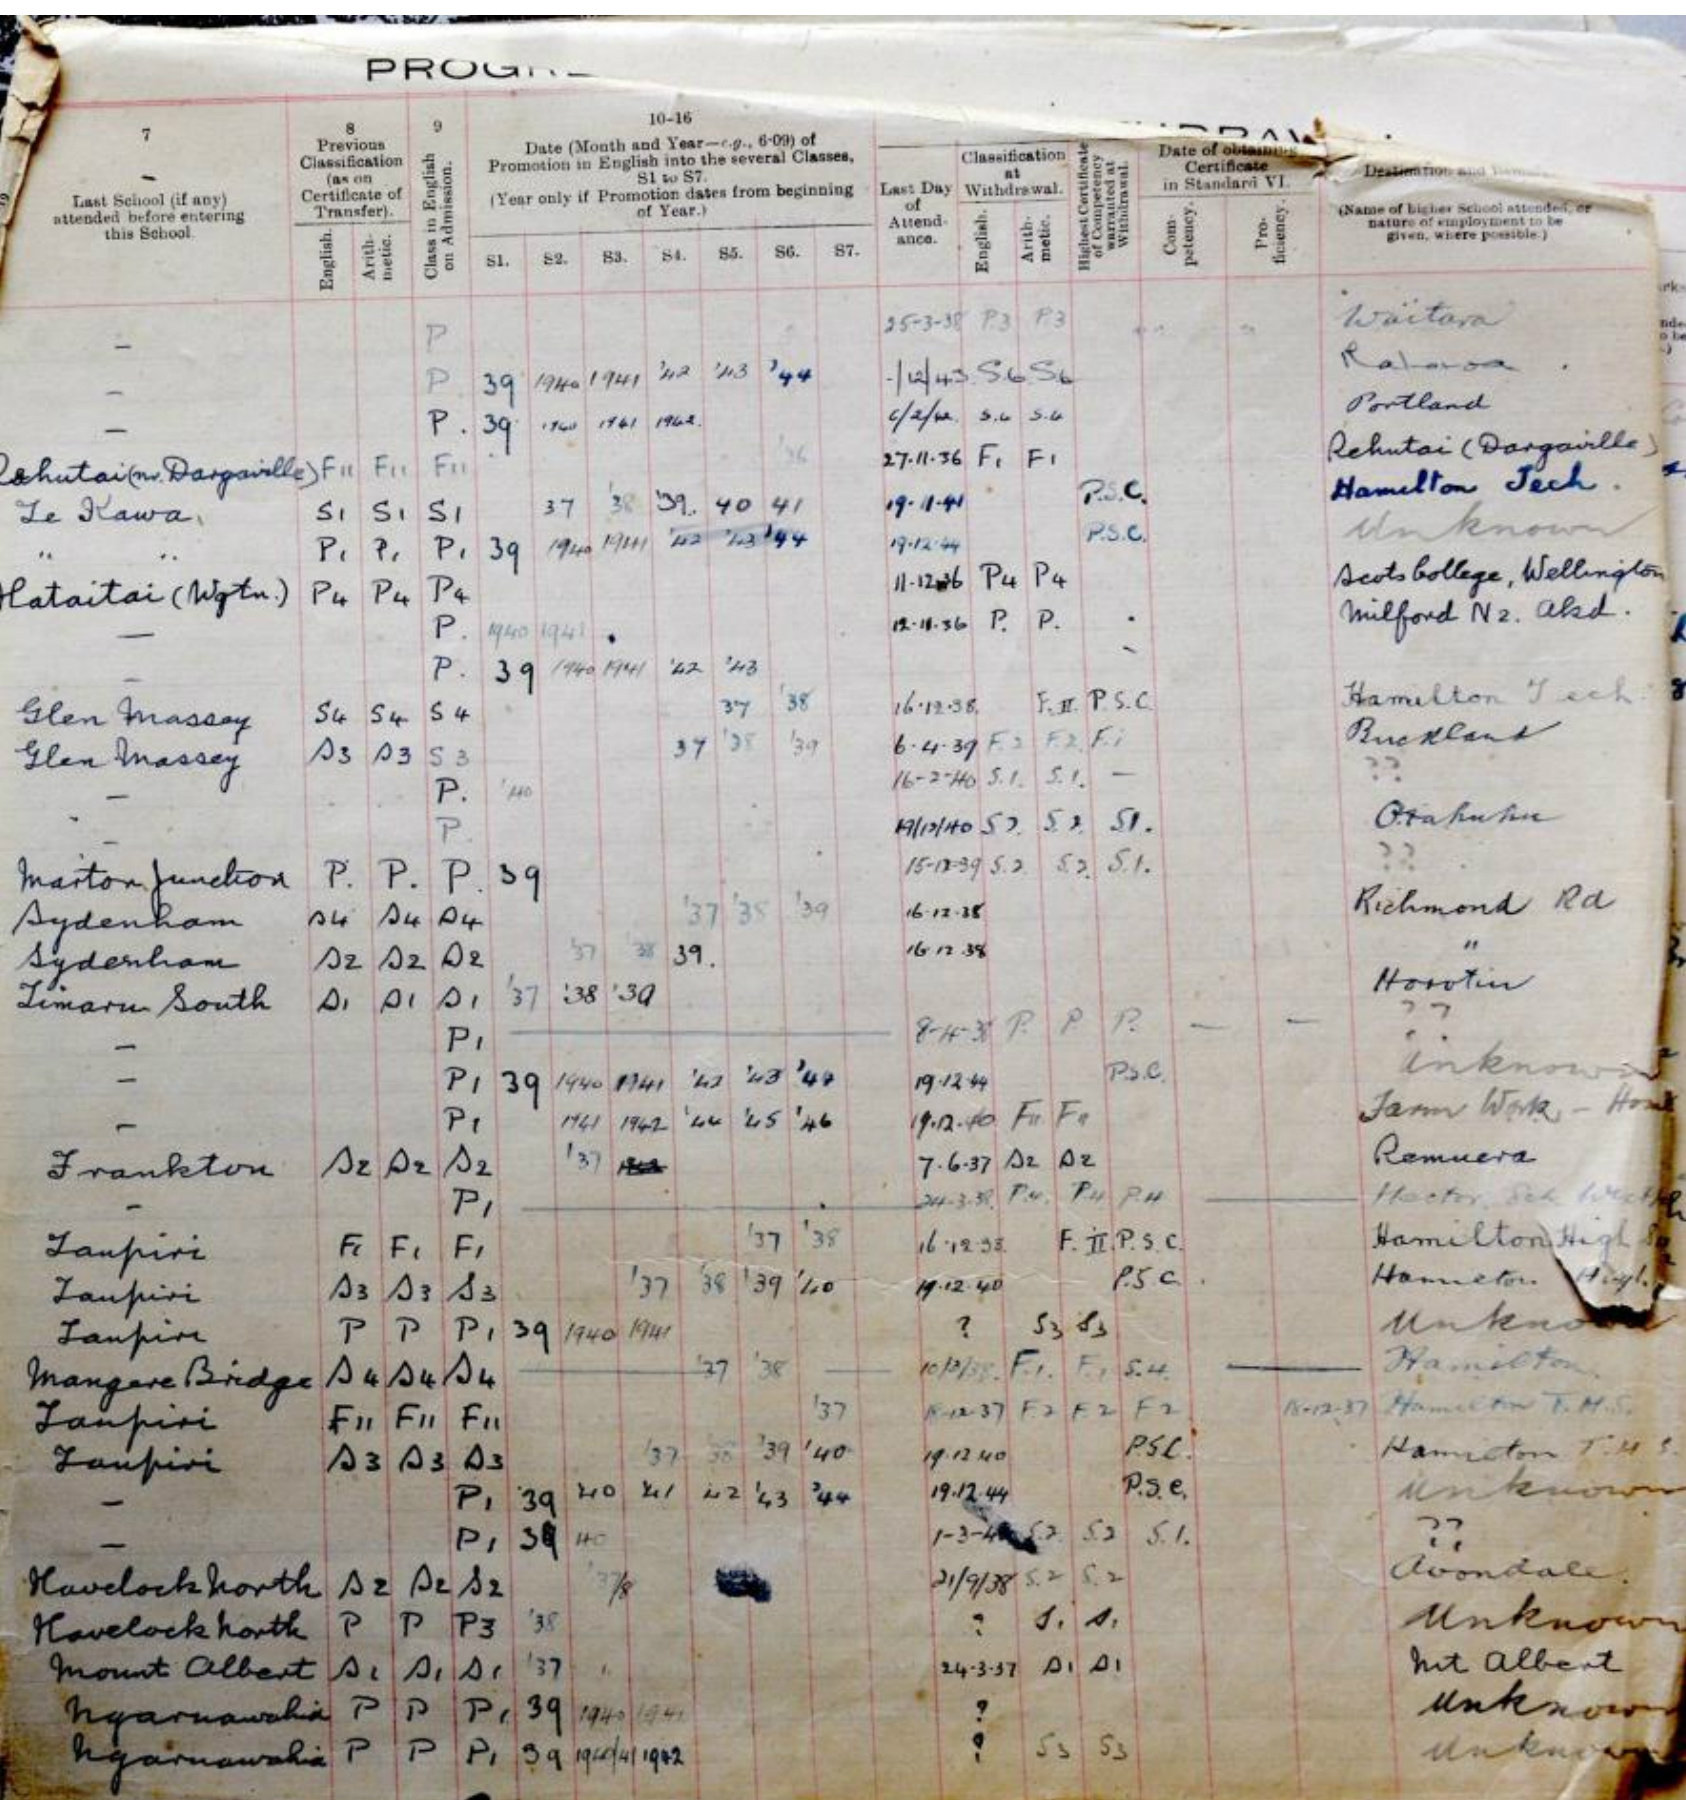 7
Last School (if any)
attended before entering
this School.
8
Previous
Classification
(as on
Certificate of
Transfer).
English.
Arith-
metic.
9
Class in English
on Admission.
10-16
Date (Month and Year—e.g., 6·09) of
Promotion in English into the several Classes,
S1 to S7.
(Year only if Promotion dates from beginning
of Year.)
S1. S2. S3. S4. S5. S6. S7.
Last Day
of
Attend-
ance.
Classification
at
Withdrawal.
English.
Arith-
metic.
Highest Certificate
of Competency
warranted at
Withdrawal.
Date of obtaining
Certificate
in Standard VI.
Com-
petency.
Pro-
ficiency.
Destination and
(Name of higher School attended, or
nature of employment to be
given, where possible.)
— P 25-3-38 P.3 P.3 Waitara
— P 39 1940 1941 '42 '43 '44 -/12/43 S6 S6
— P. 39 1940 1941 1942. S.4 S.4 Portland
(nr. Dargaville) F11 F11 F11 '36 27.11.36 F1 F1 Rehutai (Dargaville)
Te Kawa S1 S1 S1 37 '38 '39. 40 41 19.11.41 P.S.C. Hamilton Tech.
" " P1 P1 P1 39 1940 1941 '42 '43 '44 19.12.44 P.S.C. Unknown
Hataitai (Wgtn.) P4 P4 P4 11.12.36 P4 P4 Scots College, Wellington
— P. 1940 1941 12.11.36 P. P. Milford Nz. Akd.
— P. 39 1940 1941 '42 '43
Glen Massey S4 S4 S4 37 '38 16.12.38. F.II P.S.C. Hamilton Tech
Glen Massey S3 S3 S3 37 '38 '39 6.4.39 F.2 F.2 F.1 Buckland
— P. '40 16-2-40 S.1. S.1. — ??
— P. 19/12/40 S2. S2. S1. Otahuhu
Marton Junction P. P. P. 39 15-12-39 S.2. S.2. S.1. ??
Sydenham S4 S4 S4 '37 '38 '39 16.12.38 Richmond Rd
Sydenham S2 S2 S2 '37 '38 39. 16.12.38 "
Timaru South S1 S1 S1 '37 '38 '39 Horotiu
— P1 8-4-38 P. P P. — — ??
— P1 39 1940 1941 '42 '43 '44 19.12.44 P.S.C. Unknown
— P1 1941 1942 '44 '45 '46 19.12.40 F11 F11 Farm Work –
Frankton S2 S2 S2 '37 7.6.37 S2 S2 Remuera
— P1 24-3-38. P.4. P.4 P.4 Hector. Sch.
Taupiri F1 F1 F1 '37 '38 16.12.38. F.II P.S.C. Hamilton High
Taupiri S3 S3 S3 '37 '38 '39 '40 19.12.40 P.S.C. Hamilton High.
Taupiri P P P1 39 1940 1941 ? S3 S3
Mangere Bridge S4 S4 S4 '37 '38 F.1. F.1 S.4. Hamilton
Taupiri F11 F11 F11 '37 F2 F2 F2 Hamilton T.H.S.
Taupiri S3 S3 S3 '37 '38 '39 '40 19.12.40 P.S.C. Hamilton T.H.S.
— P1 39 '40 '41 '42 '43 '44 19.12.44 P.S.C. Unknown
— P1 39 40 S.2 S2 S.1. ??
Havelock North S2 S2 S2 21/9/38 S.2 S.2 Avondale.
Havelock North P P P3 '38 ? S1 S1 Unknown
Mount Albert S1 S1 S1 '37 24.3.37 S1 S1 Mt Albert
Ngaruawahia P P P1 39 1940 1941 ? Unknown
Ngaruawahia P P P1 39 1940/41 1942 ? S3 S3 Unknown